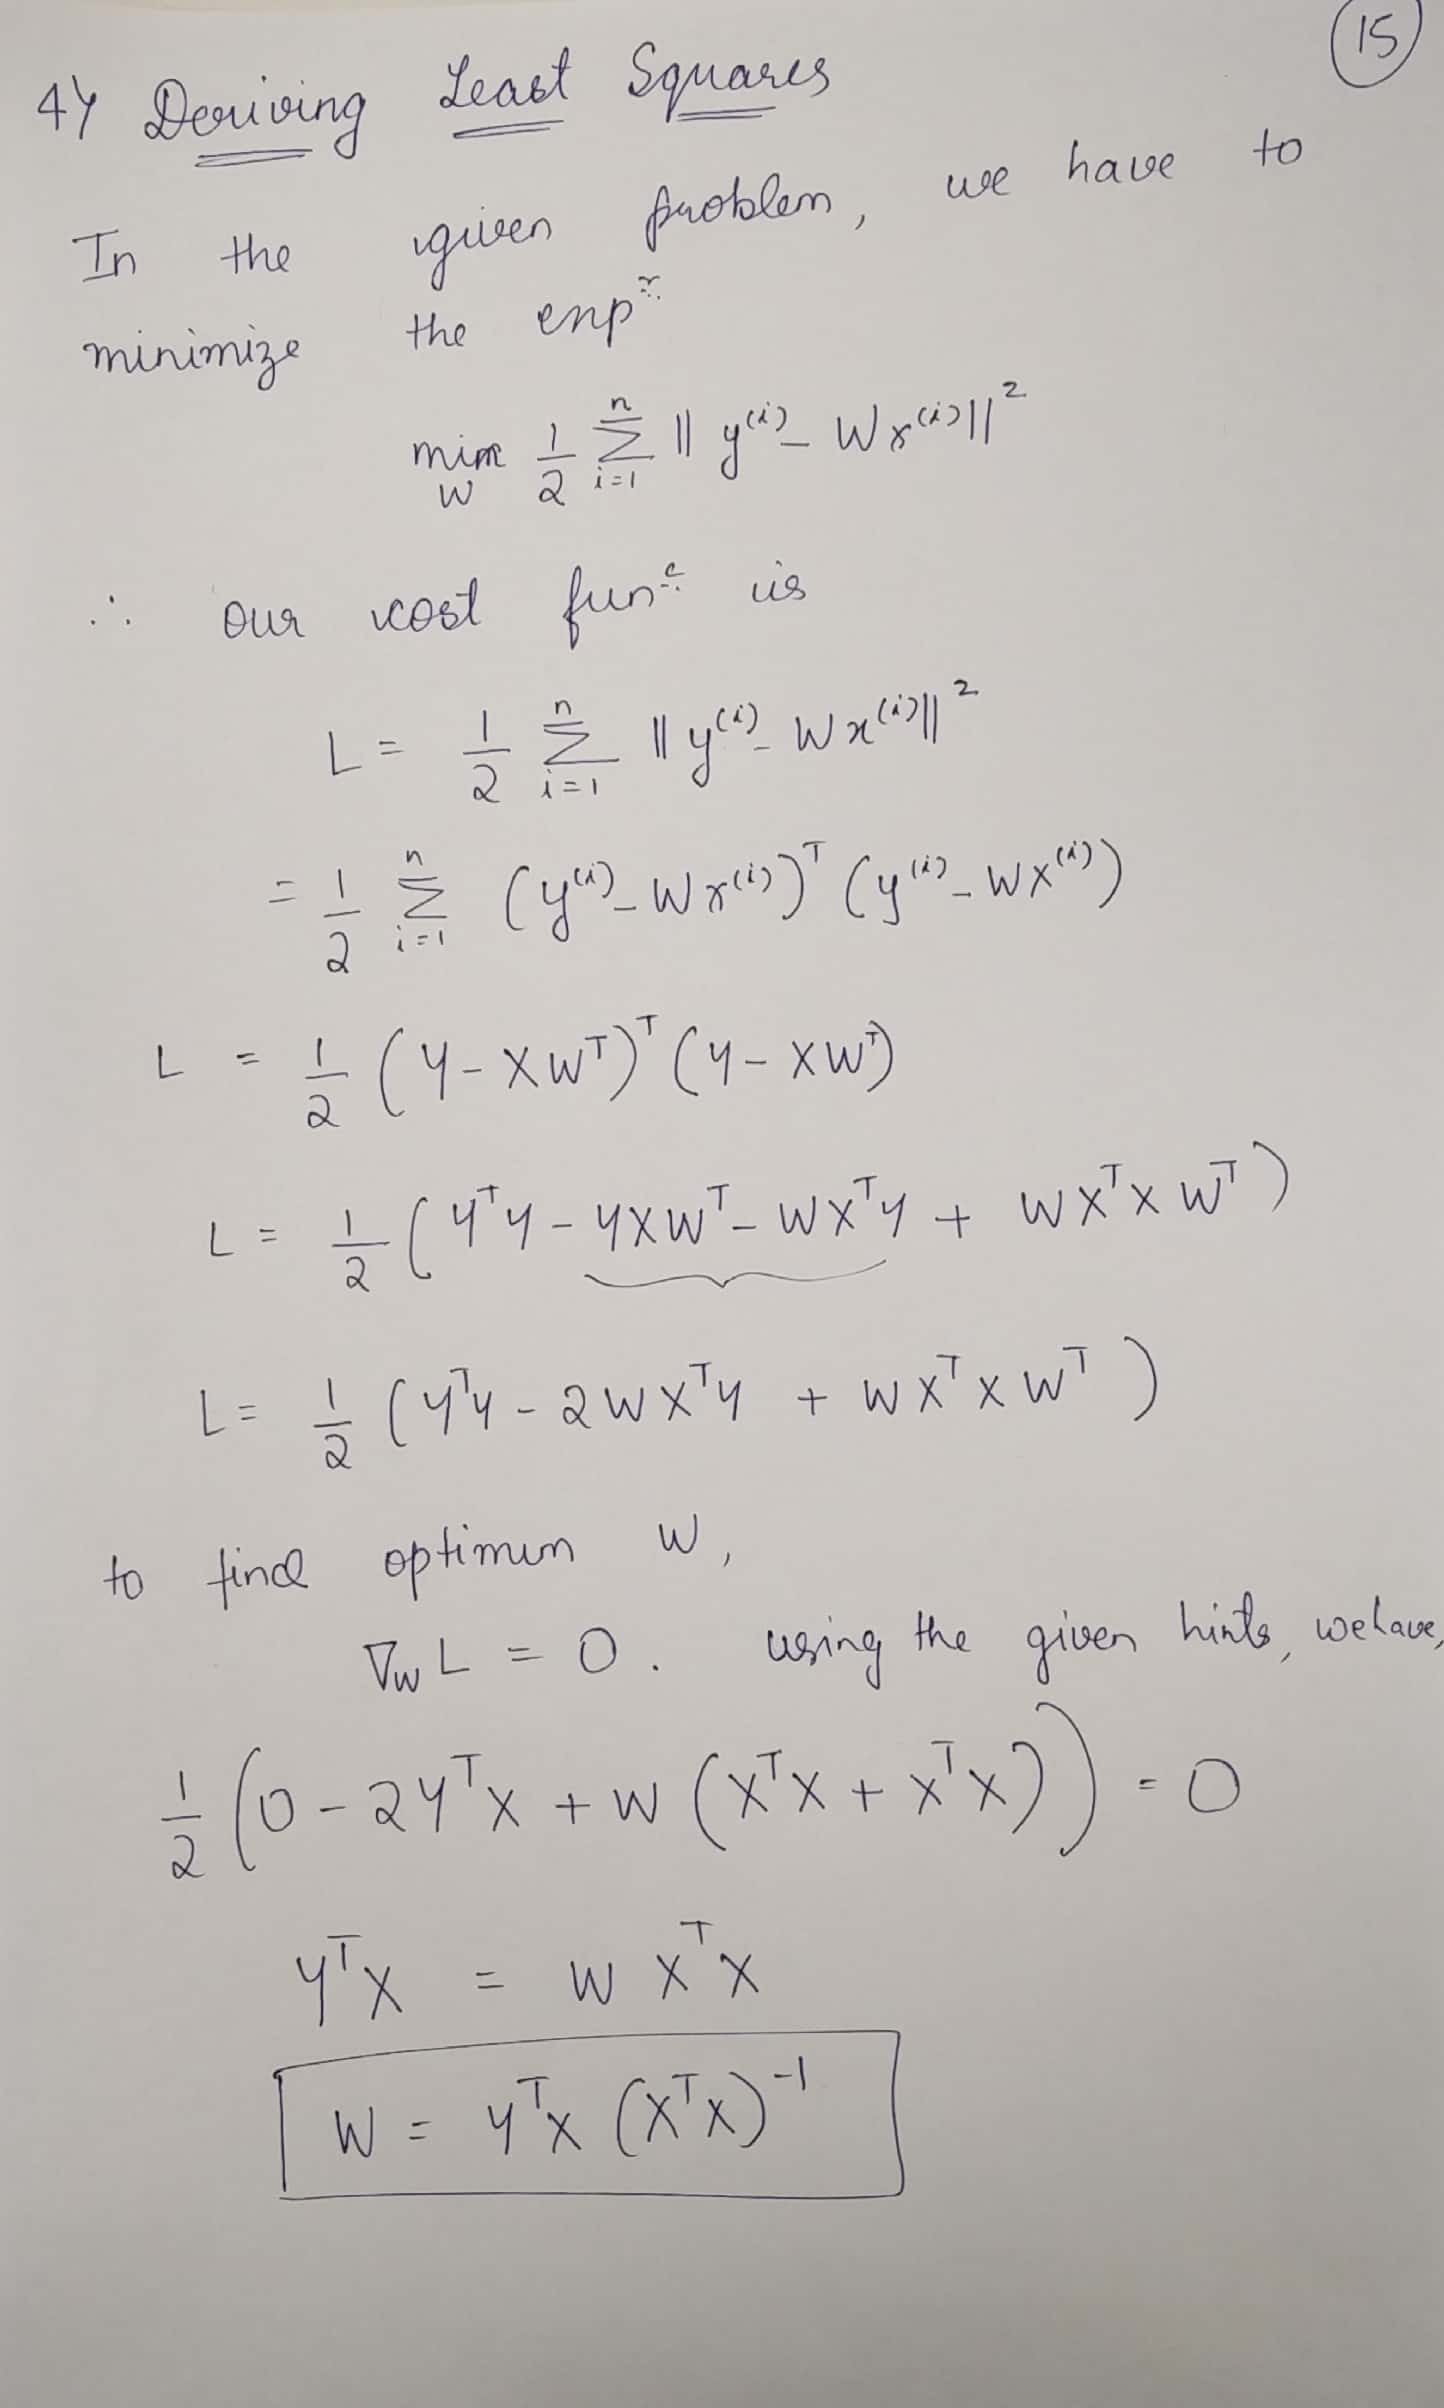 15
4) Deriving Least Squares
In the given problem, we have to
minimize the expⁿ.
min_W 1/2 Σ_{i=1}^{n} || y^{(i)} - W x^{(i)} ||^2
∴ our cost funᶜ is
L = 1/2 Σ_{i=1}^{n} || y^{(i)} - W x^{(i)} ||^2
= 1/2 Σ_{i=1}^{n} (y^{(i)} - W x^{(i)})^T (y^{(i)} - W x^{(i)})
L = 1/2 (Y - XW^T)^T (Y - XW^T)
L = 1/2 (Y^T Y - YXW^T - WX^T Y + WX^T X W^T)
L = 1/2 (Y^T Y - 2WX^T Y + WX^T X W^T)
to find optimum W,
∇_W L = 0. using the given hints, we have,
1/2 (0 - 2Y^T X + W (X^T X + X^T X)) = 0
Y^T X = W X^T X
W = Y^T X (X^T X)^{-1}